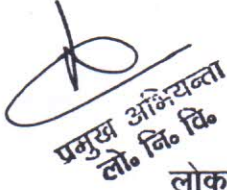 प्रमुख अभियन्ता
लो० नि० वि०
लोक